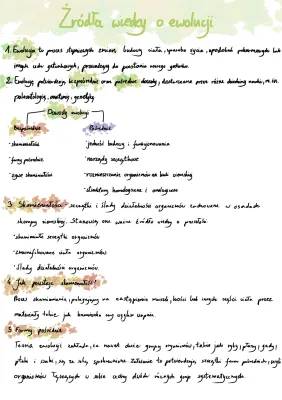 Źródła wiedzy o ewolucji
1. Ewolucja to proces stopniowych zmian budowy ciała, sposobu życia, upodobań pokarmowych lub
innych cech gatunkowych, prowadzący do powstania nowego gatunku.
2. Ewolucję potwierdzają bezpośrednie oraz pośrednie dowody, dostarczane przez różne dziedziny nauki, m.in.
paleontologię, anatomię, genetykę
Dowody ewolucji
Bezpośrednie
Pośrednie
·skamieniałości
·jedność budowy i funkcjonowania
·formy pośrednie
·narządy szczątkowe
·żywe skamieniałości
·rozmieszczenie organizmów na kuli ziemskiej
·struktury homologiczne i analogiczne
3. Skamieniałości - szczątki i ślady działalności organizmów zachowane w osadach
skorupy ziemskiej. Stanowią one ważne źródło wiedzy o przeszłości
·skamieniałe szczątki organizmów
·zmumifikowane ciała organizmów
·ślady działalności organizmów.
4. Jak powstaje skamieniałość?
Proces skamieniania, polegający na zastąpieniu muszli, kości lub innych części ciała przez
materiały takie jak krzemionka czy węglan wapnia.
5. Formy pośrednie
Teoria ewolucji zakłada, że nawet duże grupy organizmów, takie jak ryby, płazy, gady,
ptaki i ssaki, są ze sobą spokrewnione. Założenie to potwierdzają szczątki form pośrednich, czyli
organizmów łączących w sobie cechy dwóch różnych grup systematycznych.